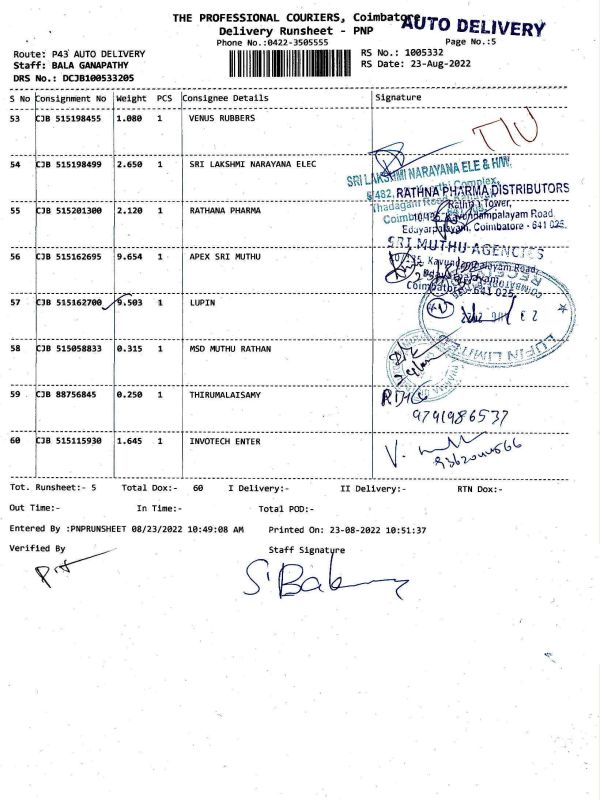 THE PROFESSIONAL COURIERS, Coimbatore
AUTO DELIVERY
Delivery Runsheet - PNP
Phone No.:0422-3505555
Page No.:5
Route: P43 AUTO DELIVERY
RS No.: 1005332
Staff: BALA GANAPATHY
RS Date: 23-Aug-2022
DRS No.: DCJB100533205
S No Consignment No Weight PCS Consignee Details Signature
53 CJB 515198455 1.080 1 VENUS RUBBERS
54 CJB 515198499 2.650 1 SRI LAKSHMI NARAYANA ELEC
SRI LAKSHMI NARAYANA ELE & H/W,
RATHNA PHARMA DISTRIBUTORS
Rathna Tower,
10/425, Kavundampalayam Road
Edayarpalayam, Coimbatore - 641 025.
55 CJB 515201300 2.120 1 RATHANA PHARMA
SRI MUTHU AGENCIES
56 CJB 515162695 9.654 1 APEX SRI MUTHU
Kavundampalayam Road,
Edayarpalayam
Coimbatore - 641 025.
57 CJB 515162700 9.503 1 LUPIN
LUPIN LIMITED
58 CJB 515058833 0.315 1 MSD MUTHU RATHAN
59 CJB 88756845 0.250 1 THIRUMALAISAMY
9791986537
60 CJB 515115930 1.645 1 INVOTECH ENTER
Tot. Runsheet:- 5 Total Dox:- 60 I Delivery:- II Delivery:- RTN Dox:-
Out Time:- In Time:- Total POD:-
Entered By :PNPRUNSHEET 08/23/2022 10:49:08 AM Printed On: 23-08-2022 10:51:37
Verified By Staff Signature
S'Bala